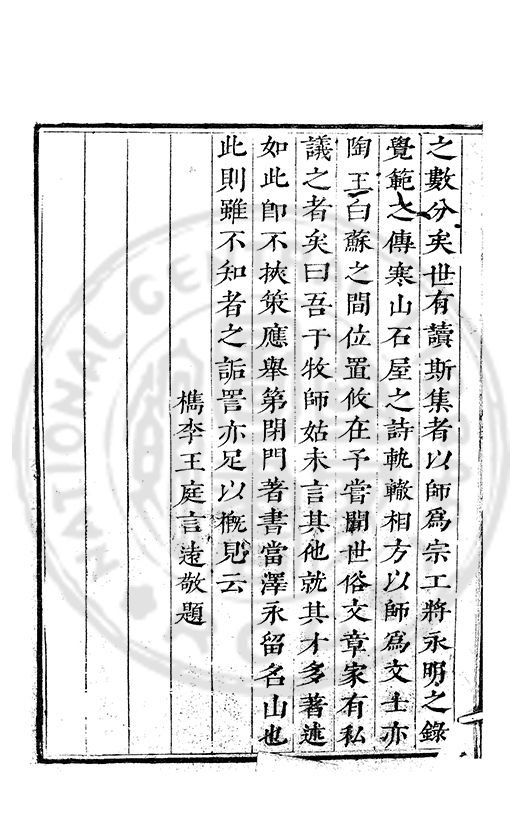 之數分矣世有讀斯集者以師爲宗工將永明之錄
覺範之傳寒山石屋之詩軌轍相方以師爲文士亦
陶王白蘇之間位置攸在予嘗聞世俗文章家有私
議之者矣曰吾于牧師姑未言其他就其才多著述
如此卽不挾策應舉第閉門著書當澤永留名山也
此則雖不知者之詬詈亦足以概見云
檇李王庭言遠敬題
NATIONAL CENTRAL